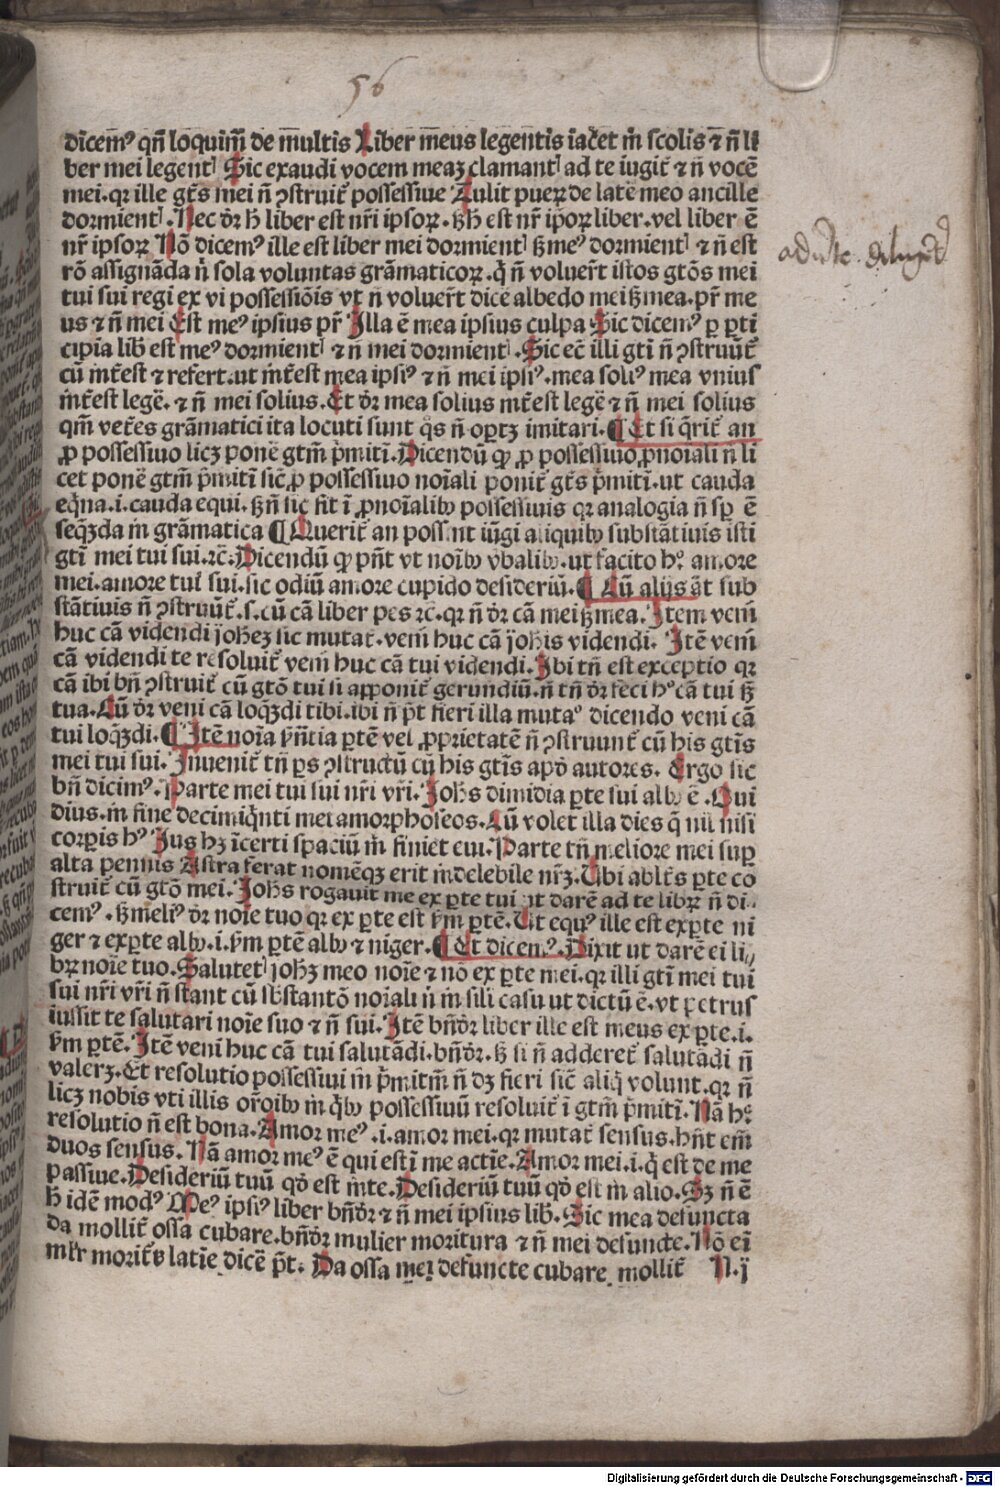 56
dicemꝰ qñ loquim̃ de m̃ultis Liber m̃eus legentis iacet in scolis ⁊ ñ li
ber mei legent᷑ Sic exaudi vocem meaꝫ clamant᷑ ad te iugit᷑ ⁊ ñ vocẽ
mei. qꝛ ille gt̃s mei ñ ꝯstruit᷑ possessiue Tulit pueꝝ de latẽ meo ancille
dormient᷑. Nec dꝛ̃ h̃ liber est nr̃i ipsoꝝ. ßh̃ est nr̃ ipoꝝ liber. vel liber ẽ
nr̃ ipsoꝝ Nõ dicemꝰ ille est liber mei dormient᷑ ßmeꝰ dormient᷑ ⁊ ñ est
rõ assignãda ñ sola voluntas grãmaticoꝝ. q̃ ñ voluer̃t istos gtõs mei
tui sui regi ex vi possessiõis vt ñ voluer̃t dicẽ albedo mei ßmea. pr̃ me
us ⁊ ñ mei Est meꝰ ipsius pr̃ Illa ẽ mea ipsius culpa Sic dicemꝰ ꝑ ꝑti
cipia lib̃ est meꝰ dormient᷑ ⁊ ñ mei dormient᷑. Sic ec̃ illi gti ñ ꝯstruũt᷑
cũ m̃t̃est ⁊ refert. ut m̃t̃est mea ipsiꝰ ⁊ ñ mei ipsiꝰ. mea soliꝰ mea vnius
m̃t̃est legẽ. ⁊ ñ mei solius. Et dꝛ̃ mea solius mt̃est legẽ ⁊ ñ mei solius
qm̃ vet̃es grãmatici ita locuti sunt q̃s ñ oꝑtꝫ imitari. ¶ Et si q̃rit᷑ an
ꝓ possessiuo licꝫ ponẽ gtm̃ p̃miti. Dicendũ ꝙ ꝓ possessiuo ꝓnoĩali ñ li
cet ponẽ gtm̃ p̃miti sic̃ ꝓ possessiuo noĩali ponit᷑ gt̃s p̃miti. ut cauda
eq̃na. i. cauda equi. ßñ sic fit ĩ ꝓnoĩalibꝰ possessiuis qꝛ analogia ñ sꝑ ẽ
seq̃nda in grãmatica ¶ Querit᷑ an possint iũgi aliquibꝰ substãtiuis isti
gti mei tui sui. ⁊c̃. Dicendũ ꝙ pñt vt noĩbꝰ v̾balibꝰ. ut facito hꝰ amore
mei. amore tui sui. sic odiũ amore cupido desideriũ. ¶ Cũ alijs ãt sub
stãtiuis ñ ꝯstruũt᷑. s. cũ cã liber pes ⁊c. qꝛ ñ dꝛ̃ cã mei ßmea. Item veni
huc cã videndi joheꝫ sic mutat᷑. veni huc cã johis videndi. Itẽ veni
cã videndi te resoluit᷑ veni huc cã tui videndi. Ibi tñ est exceptio qꝛ
cã ibi bñ ꝯstruit᷑ cũ gtõ tui si apponit᷑ gerundiũ. ñ tñ dꝛ̃ feci hꝰ cã tui ß
tua. Cũ dꝛ̃ veni cã loq̃ndi tibi. ibi ñ p̃t fieri illa mutaᵒ dicendo veni cã
tui loq̃ndi. ¶ Itẽ noĩa ſñtia ꝑtẽ vel ꝓprietatẽ ñ ꝯstruunt᷑ cũ his gtis
mei tui sui. Inuenit᷑ tñ ꝑs ꝯstructũ cũ his gtis apd̃ autores. Ergo sic
bñ dicimꝰ. Parte mei tui sui nr̃i vr̃i. Johs dimidia ꝑte sui albꝰ ẽ. Oui
dius. in fine decimiq̃nti metamorphoseos. Cũ volet illa dies q̃ nil nisi
corꝑis hꝰ Jus hꝫ ĩcerti spaciũ m̃ finiet eui. Parte tñ meliore mei suꝑ
alta perennis Astra ferar nomẽqꝫ erit indelebile nr̃ꝫ. Ubi ablt̃s ꝑte co
struit᷑ cũ gtõ mei. Johs rogauit me ex ꝑte tui ut darẽ ad te libꝝ ñ di.
cemꝰ. ßmeliꝰ dꝛ̃ noĩe tuo qꝛ ex ꝑte est ſm ꝑtẽ. Ut equꝰ ille est exꝑte ni
ger ⁊ exꝑte albꝰ. i. ſm ꝑtẽ albꝰ ⁊ niger. ¶ Et dicemꝰ. Dixit ut darẽ ei li⸗
bꝝ noĩe tuo. Salutet᷑ johꝫ meo noĩe ⁊ nõ ex ꝑte mei. qꝛ illi gti mei tui
sui nr̃i vr̃i ñ stant cũ sb̃stantõ noĩali ñ in sili casu ut dictũ ẽ. vt petrus
iussit te salutari noĩe suo ⁊ ñ sui. Itẽ bñdꝛ̃ liber ille est meus ex ꝑte. i.
ſm ꝑtẽ. Itẽ veni huc cã tui salutãdi. bñdꝛ̃. ß si ñ adderet᷑ salutãdi ñ
valerꝫ. Et resolutio possessiui in p̃mitm̃ ñ dꝫ fieri sic̃ aliq̃ volunt. qꝛ ñ
licꝫ nobis vti illis or̃oĩbꝰ in q̃bꝰ possessiuũ resoluit᷑ ĩ gtm̃ p̃miti. Nã hꝰ
resolutio ñ est bona. Amor meꝰ. i. amor mei. qꝛ mutat᷑ sensus. hñt em̃
duos sensus. Nã amor meꝰ ẽ qui est ĩ me actiẽ. Amor mei. i. q̃ est de me
passiue. Desideriũ tuũ qd̃ est in te. Desideriũ tuũ qd̃ est in alio. Sꝫ ñ ẽ
h̃ idẽ modꝰ Meꝰ ipsiꝰ liber bñdꝛ̃ ⁊ ñ mei ipsius lib̃. Sic mea defuncta
da mollit᷑ ossa cubare. bñdꝛ̃ mulier moritura ⁊ ñ mei defuncte. Nõ em̃
ml̃r morit᷑ꝰ latĩe dicẽ p̃t. Da ossa mei defuncte cubare mollit᷑ N. ij
Digitalisierung gefördert durch die Deutsche Forschungsgemeinschaft - DFG